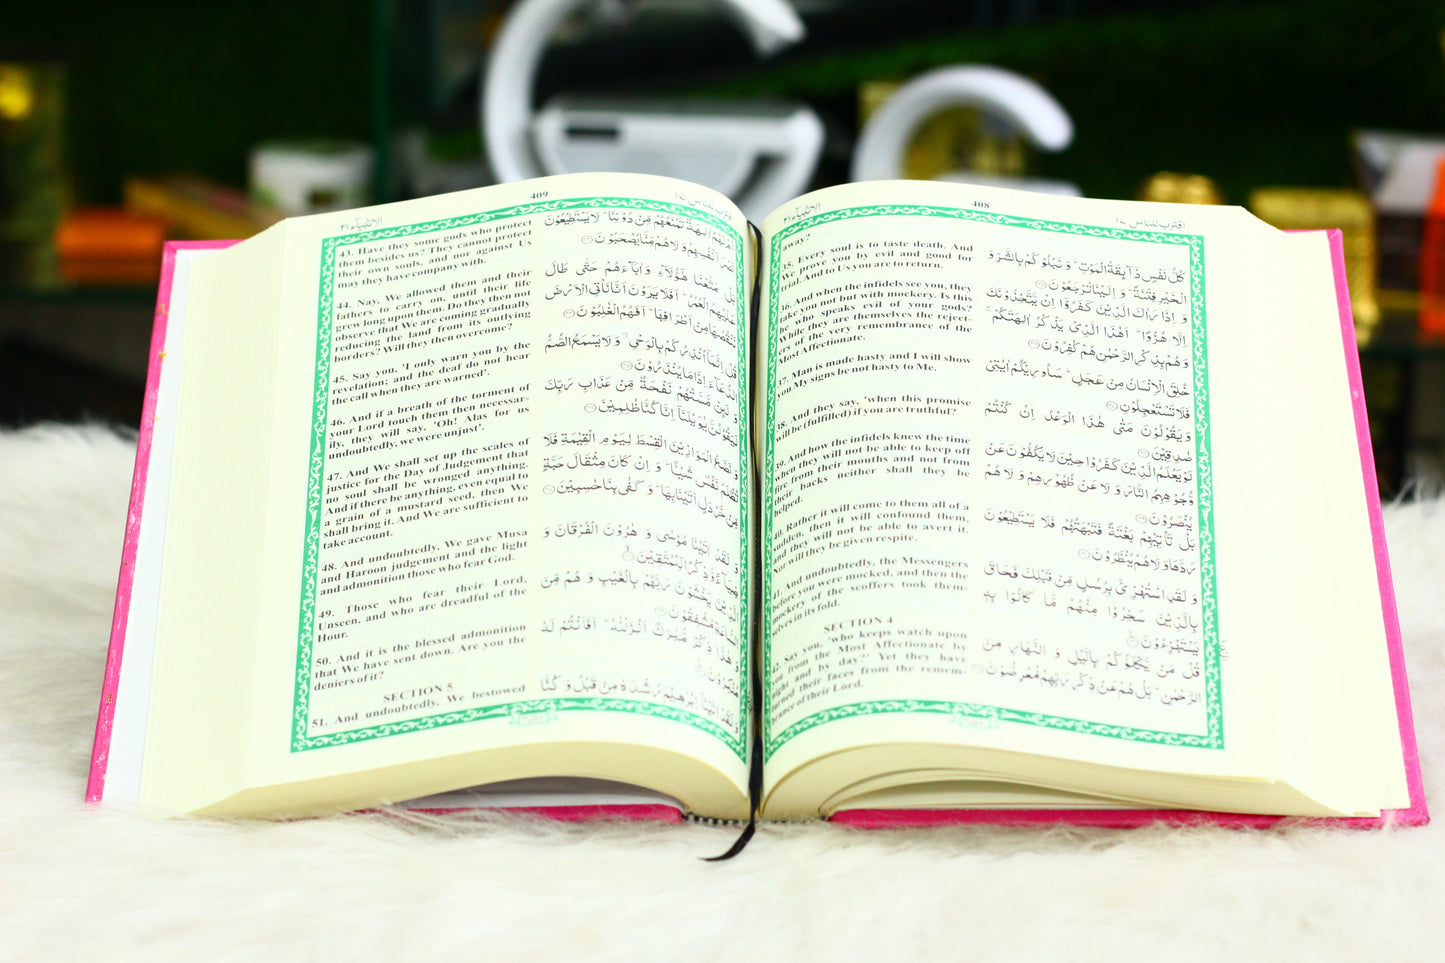 الانبیآء ٢١
408
اقترب للناس ١٧
away?
35. Every soul is to taste death. And
We prove you by evil and good for
trial. And to Us you are to return.
36. And when the infidels see you, they
take you not but with mockery. Is this
he who speaks evil of your gods?
While they are themselves the reject-
ers of the very remembrance of the
Most Affectionate.
37. Man is made hasty and I will show
you My signs be not hasty to Me.
38. And they say, 'when this promise
will be (fulfilled) if you are truthful?
39. And how the infidels knew the time
when they will not be able to keep off
fire from their mouths and not from
their backs neither shall they be
helped.
40. Rather it will come to them all of a
sudden, then it will confound them,
and they will not be able to avert it,
Nor will they be given respite.
41. And undoubtedly, the Messengers
before you were mocked, and then the
mockery of the scoffers took them-
selves in its fold.
SECTION 4
42. Say you, 'who keeps watch upon
you from the Most Affectionate by
night and by day?' Yet they have
turned their faces from the remem.
brance of their Lord.
كُلُّ نَفْسٍ ذَآئِقَةُ الْمَوْتِ ؕ وَ نَبْلُوْكُمْ بِالشَّرِّ وَ
الْخَيْرِ فِتْنَةً ؕ وَ اِلَيْنَا تُرْجَعُوْنَ
وَ اِذَا رَاٰكَ الَّذِيْنَ كَفَرُوْٓا اِنْ يَّتَّخِذُوْنَكَ
اِلَّا هُزُوًا ؕ اَهٰذَا الَّذِيْ يَذْكُرُ اٰلِهَتَكُمْ ۚ
وَ هُمْ بِذِكْرِ الرَّحْمٰنِ هُمْ كٰفِرُوْنَ
خُلِقَ الْاِنْسَانُ مِنْ عَجَلٍ ؕ سَاُورِيْكُمْ اٰيٰتِيْ
فَلَا تَسْتَعْجِلُوْنِ
وَ يَقُوْلُوْنَ مَتٰى هٰذَا الْوَعْدُ اِنْ كُنْتُمْ
صٰدِقِيْنَ
لَوْ يَعْلَمُ الَّذِيْنَ كَفَرُوْا حِيْنَ لَا يَكُفُّوْنَ عَنْ
وُّجُوْهِهِمُ النَّارَ وَ لَا عَنْ ظُهُوْرِهِمْ وَ لَا هُمْ
يُنْصَرُوْنَ
بَلْ تَاْتِيْهِمْ بَغْتَةً فَتَبْهَتُهُمْ فَلَا يَسْتَطِيْعُوْنَ
رَدَّهَا وَ لَا هُمْ يُنْظَرُوْنَ
وَ لَقَدِ اسْتُهْزِئَ بِرُسُلٍ مِّنْ قَبْلِكَ فَحَاقَ
بِالَّذِيْنَ سَخِرُوْا مِنْهُمْ مَّا كَانُوْا بِهٖ
يَسْتَهْزِءُوْنَ
قُلْ مَنْ يَّكْلَؤُكُمْ بِالَّيْلِ وَ النَّهَارِ مِنَ
الرَّحْمٰنِ ؕ بَلْ هُمْ عَنْ ذِكْرِ رَبِّهِمْ مُّعْرِضُوْنَ
الانبیآء ٢١
409
اقترب للناس ١٧
43. Have they some gods who protect
them besides us? They cannot protect
their own souls, and nor against Us
may they have company with.
44. Nay, We allowed them and their
fathers to carry on, until their life
grew long upon them. Do they then not
observe that We are coming gradually
reducing the land from its outlying
borders? Will they then overcome?
45. Say you, 'I only warn you by the
revelation; and the deaf do not hear
the call when they are warned'.
46. And if a breath of the torment of
your Lord touch them then necessar-
ily, they will say, 'Oh! Alas for us
undoubtedly, we were unjust'.
47. And We shall set up the scales of
justice for the Day of Judgement that
no soul shall be wronged anything.
And if there be anything, even equal to
a grain of a mustard seed, then We
shall bring it. And We are sufficient to
take account.
48. And undoubtedly, We gave Musa
and Haroon judgement and the light
and admonition those who fear God.
49. Those who fear their Lord,
Unseen, and who are dreadful of the
Hour.
50. And it is the blessed admonition
that We have sent down. Are you the
deniers of it?
SECTION 5
51. And undoubtedly, We bestowed
اَمْ لَهُمْ اٰلِهَةٌ تَمْنَعُهُمْ مِّنْ دُوْنِنَا ؕ لَا يَسْتَطِيْعُوْنَ
نَصْرَ اَنْفُسِهِمْ وَ لَا هُمْ مِّنَّا يُصْحَبُوْنَ
بَلْ مَتَّعْنَا هٰٓؤُلَآءِ وَ اٰبَآءَهُمْ حَتّٰى طَالَ
عَلَيْهِمُ الْعُمُرُ ؕ اَفَلَا يَرَوْنَ اَنَّا نَاْتِي الْاَرْضَ
نَنْقُصُهَا مِنْ اَطْرَافِهَا ؕ اَفَهُمُ الْغٰلِبُوْنَ
قُلْ اِنَّمَآ اُنْذِرُكُمْ بِالْوَحْيِ ۖ وَ لَا يَسْمَعُ الصُّمُّ
الدُّعَآءَ اِذَا مَا يُنْذَرُوْنَ
وَ لَئِنْ مَّسَّتْهُمْ نَفْحَةٌ مِّنْ عَذَابِ رَبِّكَ
لَيَقُوْلُنَّ يٰوَيْلَنَآ اِنَّا كُنَّا ظٰلِمِيْنَ
وَ نَضَعُ الْمَوَازِيْنَ الْقِسْطَ لِيَوْمِ الْقِيٰمَةِ فَلَا
تُظْلَمُ نَفْسٌ شَيْئًا ؕ وَ اِنْ كَانَ مِثْقَالَ حَبَّةٍ
مِّنْ خَرْدَلٍ اَتَيْنَا بِهَا ؕ وَ كَفٰى بِنَا حٰسِبِيْنَ
وَ لَقَدْ اٰتَيْنَا مُوْسٰى وَ هٰرُوْنَ الْفُرْقَانَ وَ
ضِيَآءً وَّ ذِكْرًا لِّلْمُتَّقِيْنَ
الَّذِيْنَ يَخْشَوْنَ رَبَّهُمْ بِالْغَيْبِ وَ هُمْ مِّنَ
السَّاعَةِ مُشْفِقُوْنَ
وَ هٰذَا ذِكْرٌ مُّبٰرَكٌ اَنْزَلْنٰهُ ؕ اَفَاَنْتُمْ لَهٗ
مُنْكِرُوْنَ
وَ لَقَدْ اٰتَيْنَآ اِبْرٰهِيْمَ رُشْدَهٗ مِنْ قَبْلُ وَ كُنَّا